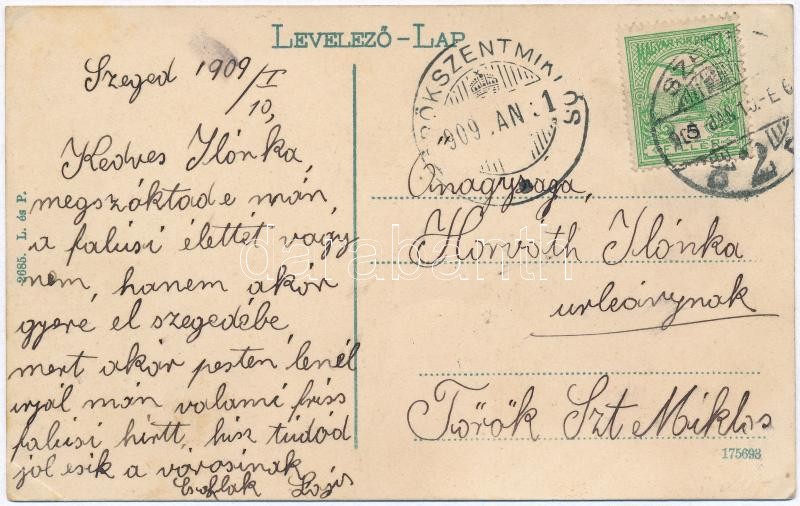 LEVELEZŐ-LAP
Szeged 1909 I/10,
Kedves Ilónka,
megszóktad e mán,
a falusi élettět vagy
nem, hanem akár
gyere el szegedébe,
mert akár pesten lenél
irjál mán valami friss
falusi hirtt, hisz túdod
jól esik a városinak
Lajos
2685. L. és P.
TÖRÖKSZENTMIKLÓS
909 JAN. 1
MAGYAR KIR. POSTA
5
FILLÉR
Őnagysága,
Horváth Ilónka
urleánynak
Török Szt Miklos
175693
darabanth